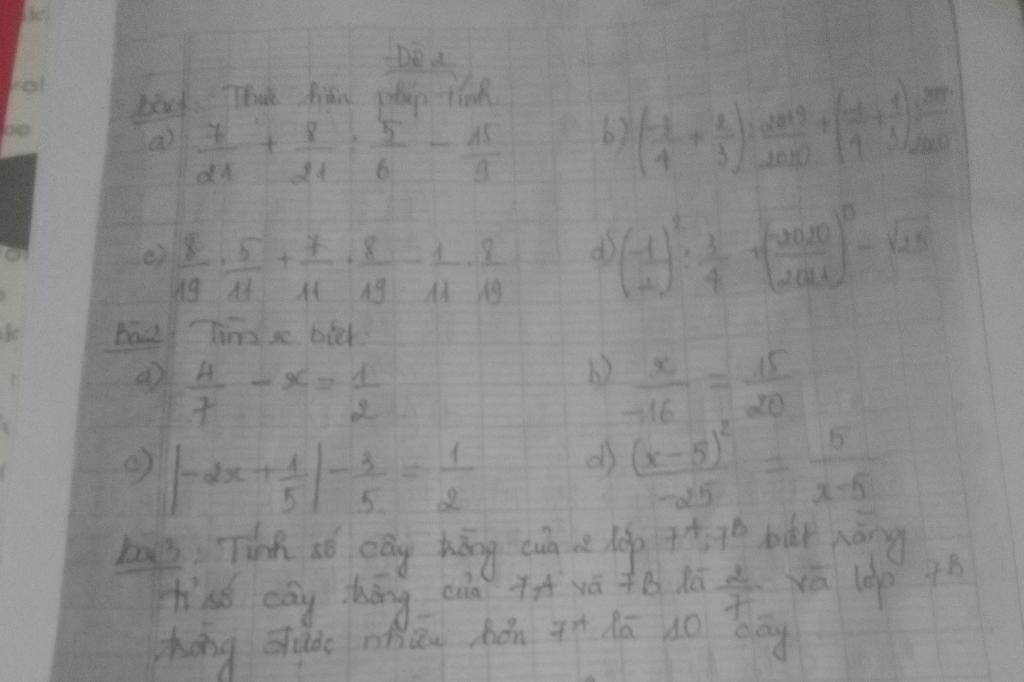 Đề 2
Bài 1: Thực hiện phép tính
a) 7/21 + 8/21 : 5/6 - 15/9 b) (-1/4 + 2/3) : 2019/2020 + (-1/4 + 1/3) : 2019/2020
c) 8/19 . 5/11 + 7/11 . 8/19 - 1/11 . 8/19 d) (-1/2)² : 3/4 + (-2020/2021)⁰ - √25
Bài 2: Tìm x biết:
a) 4/7 - x = 1/2 b) x/-16 = 15/20
c) |-2x + 1/5| - 3/5 = 1/2 d) (x-5)²/-25 = 5/x-5
Bài 3: Tính số cây trồng của 2 lớp 7A, 7B biết rằng
tỉ số cây trồng của 7A và 7B là 2/7 và lớp 7B
trồng được nhiều hơn 7A là 10 cây